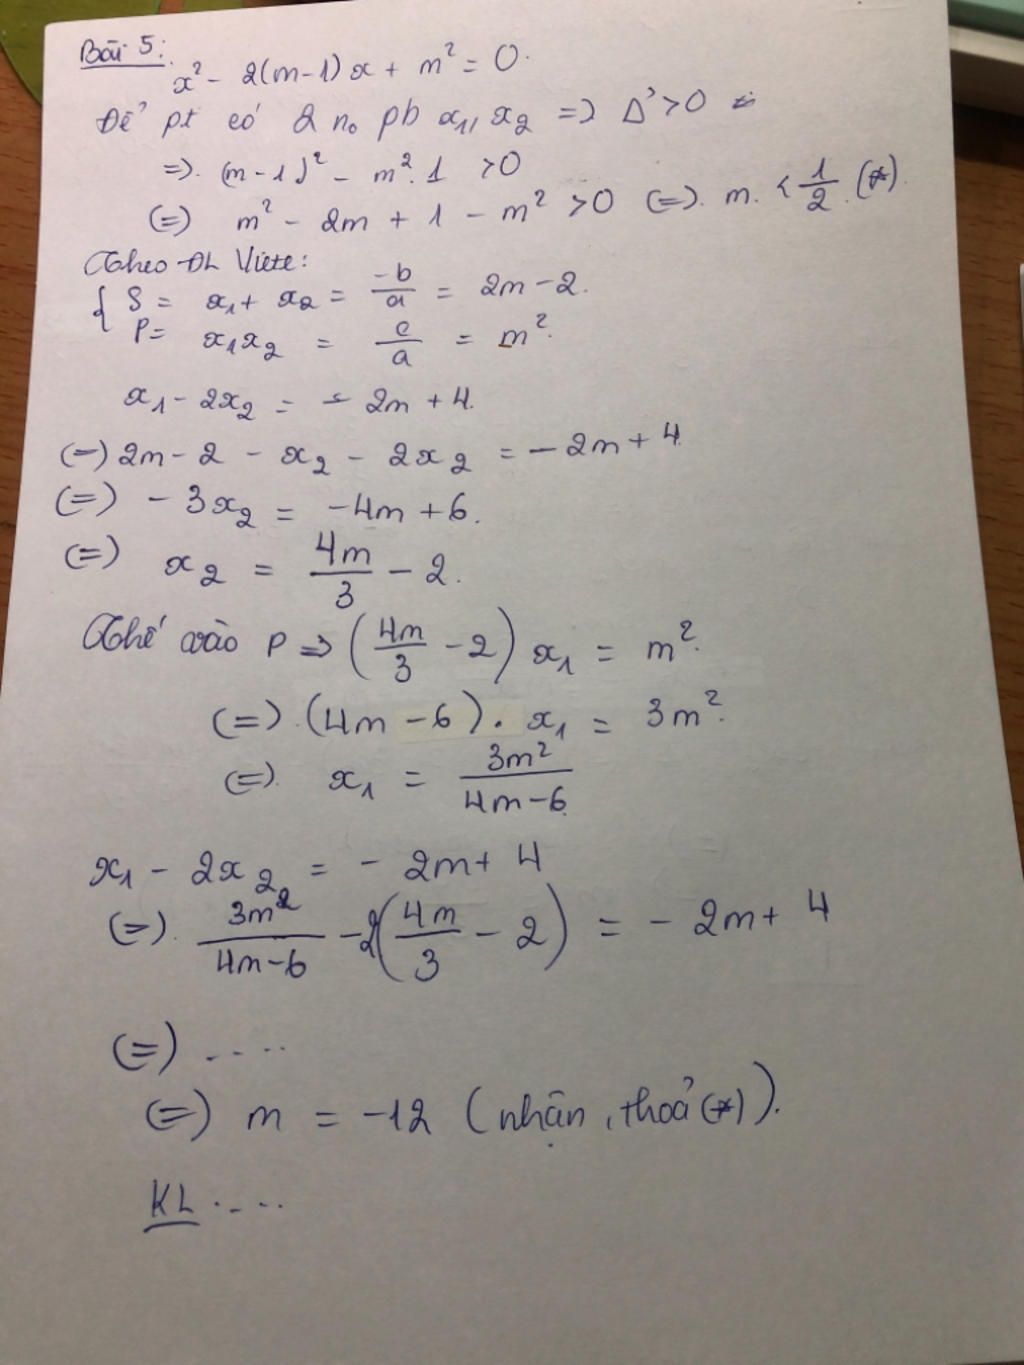 Bài 5:
x² - 2(m-1)x + m² = 0.
Để pt có 2 no pb x₁, x₂ => Δ' > 0
=>. (m-1)² - m².1 > 0
(=) m² - 2m + 1 - m² > 0 (=). m. < 1/2. (*).
Theo ĐL Viète:
{ S = x₁ + x₂ = -b/a = 2m-2.
P = x₁x₂ = c/a = m².
x₁ - 2x₂ = - 2m + 4.
(=) 2m - 2 - x₂ - 2x₂ = -2m + 4
(=) - 3x₂ = -4m + 6.
(=) x₂ = 4m/3 - 2.
Thế vào P => (4m/3 - 2) x₁ = m².
(=). (4m - 6). x₁ = 3m².
(=). x₁ = 3m²/4m-6
x₁ - 2x₂ = - 2m + 4
(=). 3m²/4m-6 - 2(4m/3 - 2) = - 2m + 4
(=) ....
(=) m = -12 (nhận, thoả (*)).
KL ....